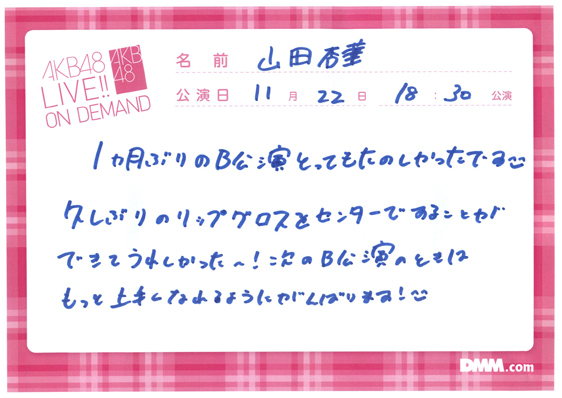 AKB48
LIVE!!
ON DEMAND
AKB
48
名前 山田杏華
公演日 11月22日 18:30公演
1ヵ月ぶりのB公演とってもたのしかったでする
久しぶりのリップグロスをセンターですることが
できてうれしかった〜！次のB公演のときは
もっと上手くなれるようにがんばります！
DMM.com